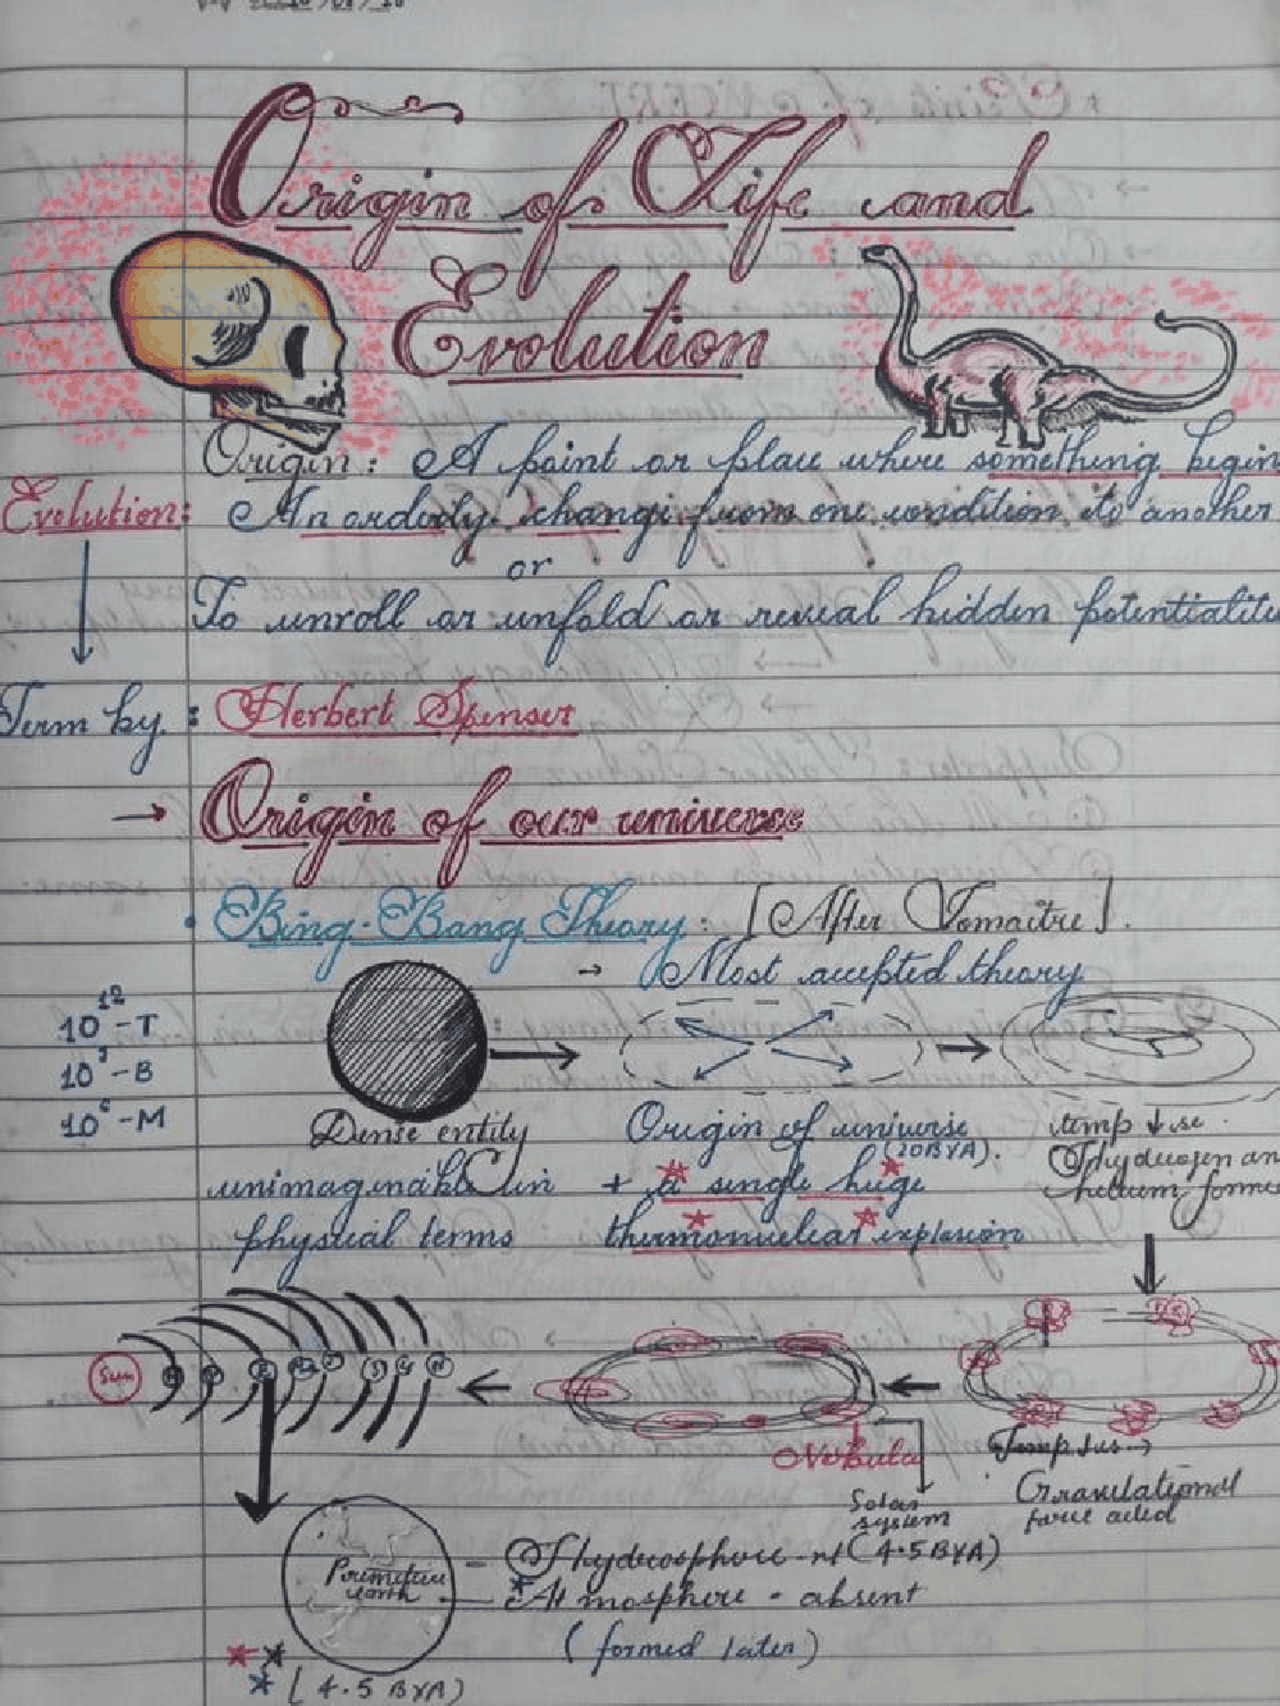 Origin of Life and
Evolution
Origin: A point or place where something begin
Evolution: An orderly change from one condition to another
or
To unroll or unfold or reveal hidden potentialitie
Term by: Herbert Spenser
→ Origin of our universe
• Bing-Bang Theory: [After Lemaitre].
→ Most accepted theory
10¹²-T
10⁹-B
10⁶-M
Dense entity
unimaginable in
physical terms
Origin of universe
(20BYA).
+ a single huge
thermonuclear explosion
temp ↓se.
Hydrogen an
helium forme
Temp ↓us→
Gravitational
force acted
Nebula
Solar
system
(4.5 BYA)
Sun
Primitive
earth
- Hydrosphere -nt
Atmosphere - absent
(formed later)
[4.5 BYA)